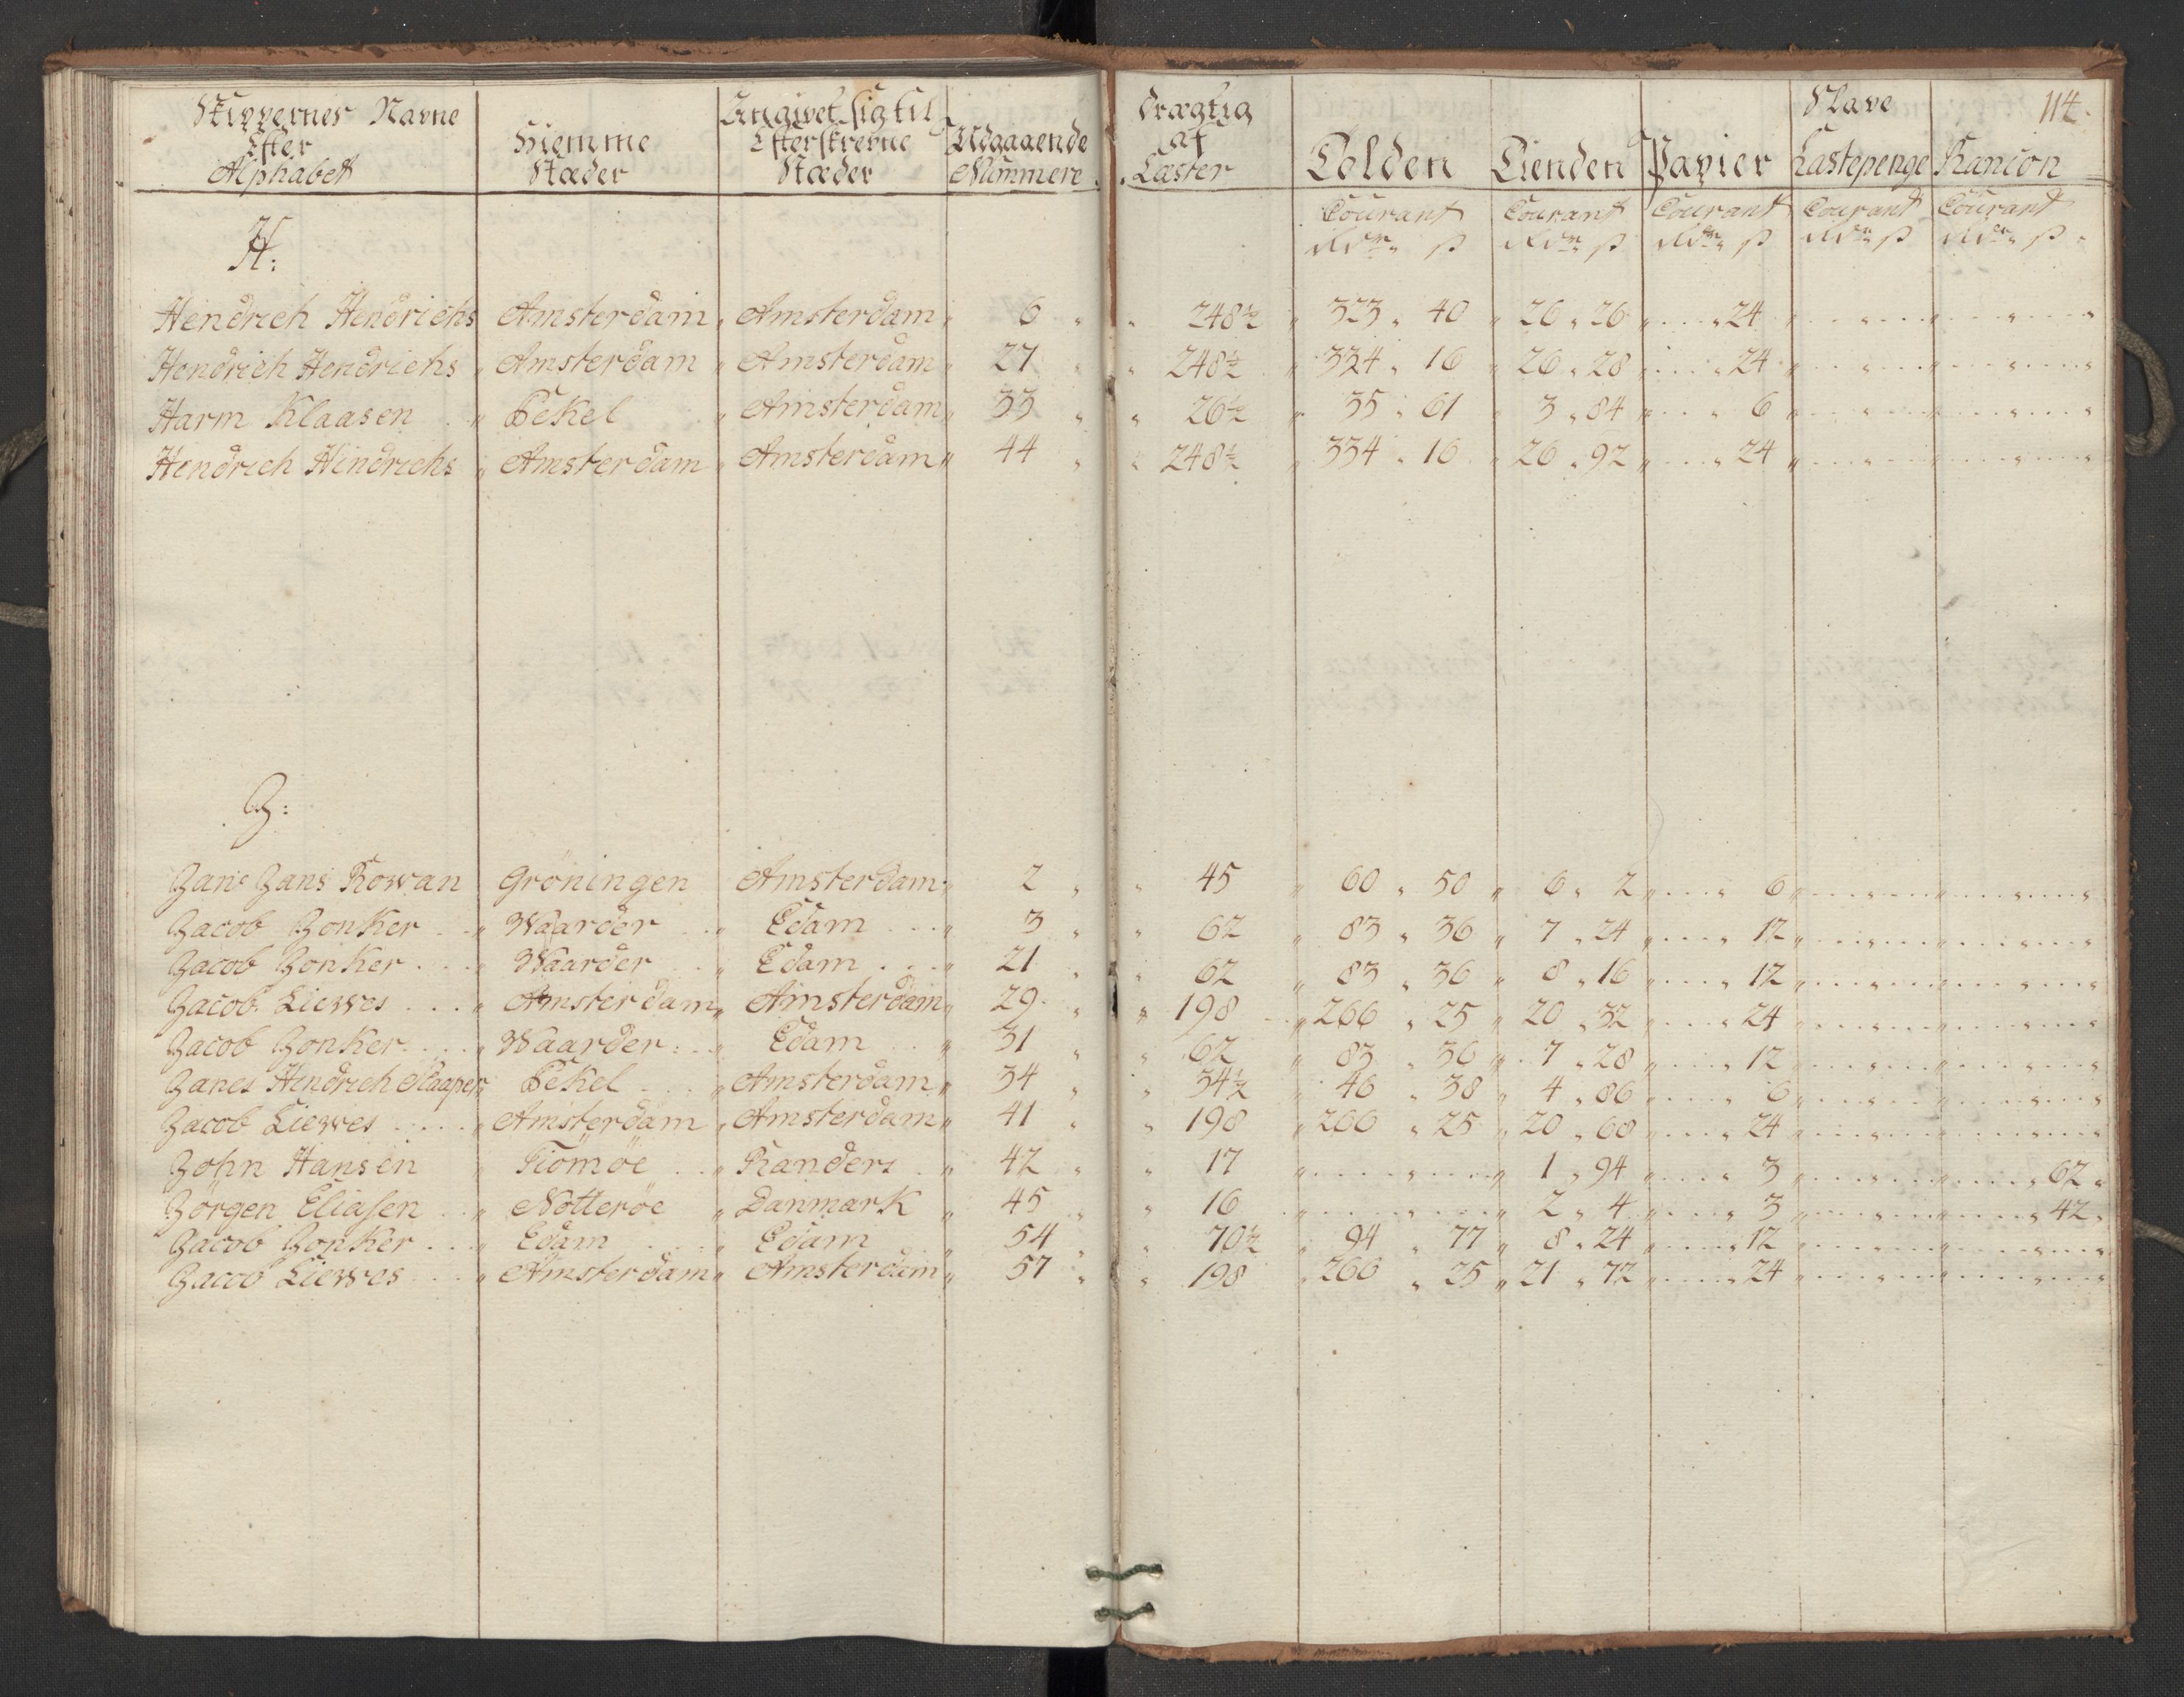 114.
Skippernes Navne Efter Alphabet | Hiemme Stæder | Angivet sig til Efterskrevne Stæder | Udgaaende Nummere | Drægtig af Læster | Tolden | Tienden | Papier | Slave Lastepenge | Rancon
Courant Rdr ß | Courant Rdr ß | Courant Rdr ß | Courant Rdr ß | Courant Rdr ß
H:
Hendrich Hendrichs Amsterdam „ Amsterdam „ 6 „ „ 248½ „ 323 „ 40 „ 26 „ 26 „ .... „ 24
Hendrich Hendrichs „ Amsterdam „ Amsterdam „ 27 „ „ 248½ „ 334 „ 16 „ 26 „ 28 „ .... „ 24
Harm Klaasen „ Pekel „ Amsterdam „ 33 „ „ 26½ „ 35 „ 61 „ 3 „ 84 „ .... „ 6
Hendrich Hindrichs „ Amsterdam „ Amsterdam „ 44 „ „ 248½ „ 334 „ 16 „ 26 „ 92 „ .... „ 24
J:
Jans Jans Kowan Gröningen Amsterdam „ 2 „ „ 45 „ 60 „ 50 „ 6 „ 2 „ .... „ 6
Jacob Jonker „ Waarder „ Edam „ 3 „ „ 62 „ 83 „ 36 „ 7 „ 24 „ .... „ 12
Jacob Jonker „ Waarder „ Edam „ 21 „ „ 62 „ 83 „ 36 „ 8 „ 16 „ .... „ 12
Jacob Liewes „ Amsterdam „ Amsterdam „ 29 „ „ 198 „ 266 „ 25 „ 20 „ 32 „ .... „ 24
Jacob Jonker „ Waarder „ Edam „ 31 „ „ 62 „ 83 „ 36 „ 7 „ 28 „ .... „ 12
Janes Hindrich Slaaper „ Pekel „ Amsterdam „ 34 „ „ 34½ „ 46 „ 38 „ 4 „ 86 „ .... „ 6
Jacob Liewes „ Amsterdam „ Amsterdam „ 41 „ „ 198 „ 266 „ 25 „ 20 „ 68 „ .... „ 24
John Hansen „ Tiömöe „ Randers „ 42 „ „ 17 „ .... „ .... „ 1 „ 94 „ .... „ 3 „ .... „ .... „ .... „ 62 „
Jörgen Eliasen „ Nötteröe „ Danmark „ 45 „ „ 16 „ .... „ .... „ 2 „ 4 „ .... „ 3 „ .... „ .... „ .... „ 42 „
Jacob Jonker „ Edam „ Edam „ 54 „ „ 70½ „ 94 „ 77 „ 8 „ 24 „ .... „ 12
Jacob Liewes „ Amsterdam „ Amsterdam „ 57 „ „ 198 „ 266 „ 25 „ 21 „ 72 „ .... „ 24